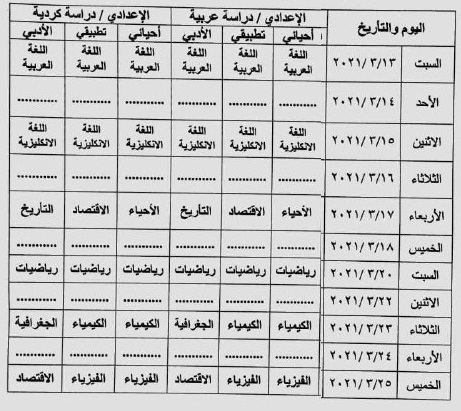 اليوم والتأريخ الإعدادي / دراسة عربية الإعدادي / دراسة كردية
أحيائي تطبيقي الأدبي أحيائي تطبيقي الأدبي
السبت ٢٠٢١/٣/١٣ اللغة العربية اللغة العربية اللغة العربية اللغة العربية اللغة العربية اللغة العربية
الأحد ٢٠٢١/٣/١٤ .......... .......... .......... .......... .......... ..........
الاثنين ٢٠٢١/٣/١٥ اللغة الانكليزية اللغة الانكليزية اللغة الانكليزية اللغة الانكليزية اللغة الانكليزية اللغة الانكليزية
الثلاثاء ٢٠٢١/٣/١٦ .......... .......... .......... .......... .......... ..........
الأربعاء ٢٠٢١/٣/١٧ الأحياء الاقتصاد التأريخ الأحياء الاقتصاد التأريخ
الخميس ٢٠٢١/٣/١٨ .......... .......... .......... .......... .......... ..........
السبت ٢٠٢١/٣/٢٠ رياضيات رياضيات رياضيات رياضيات رياضيات رياضيات
الاثنين ٢٠٢١/٣/٢٢ .......... .......... .......... .......... .......... ..........
الثلاثاء ٢٠٢١/٣/٢٣ الكيمياء الكيمياء الجغرافية الكيمياء الكيمياء الجغرافية
الأربعاء ٢٠٢١/٣/٢٤ .......... .......... .......... .......... .......... ..........
الخميس ٢٠٢١/٣/٢٥ الفيزياء الفيزياء الاقتصاد الفيزياء الفيزياء الاقتصاد